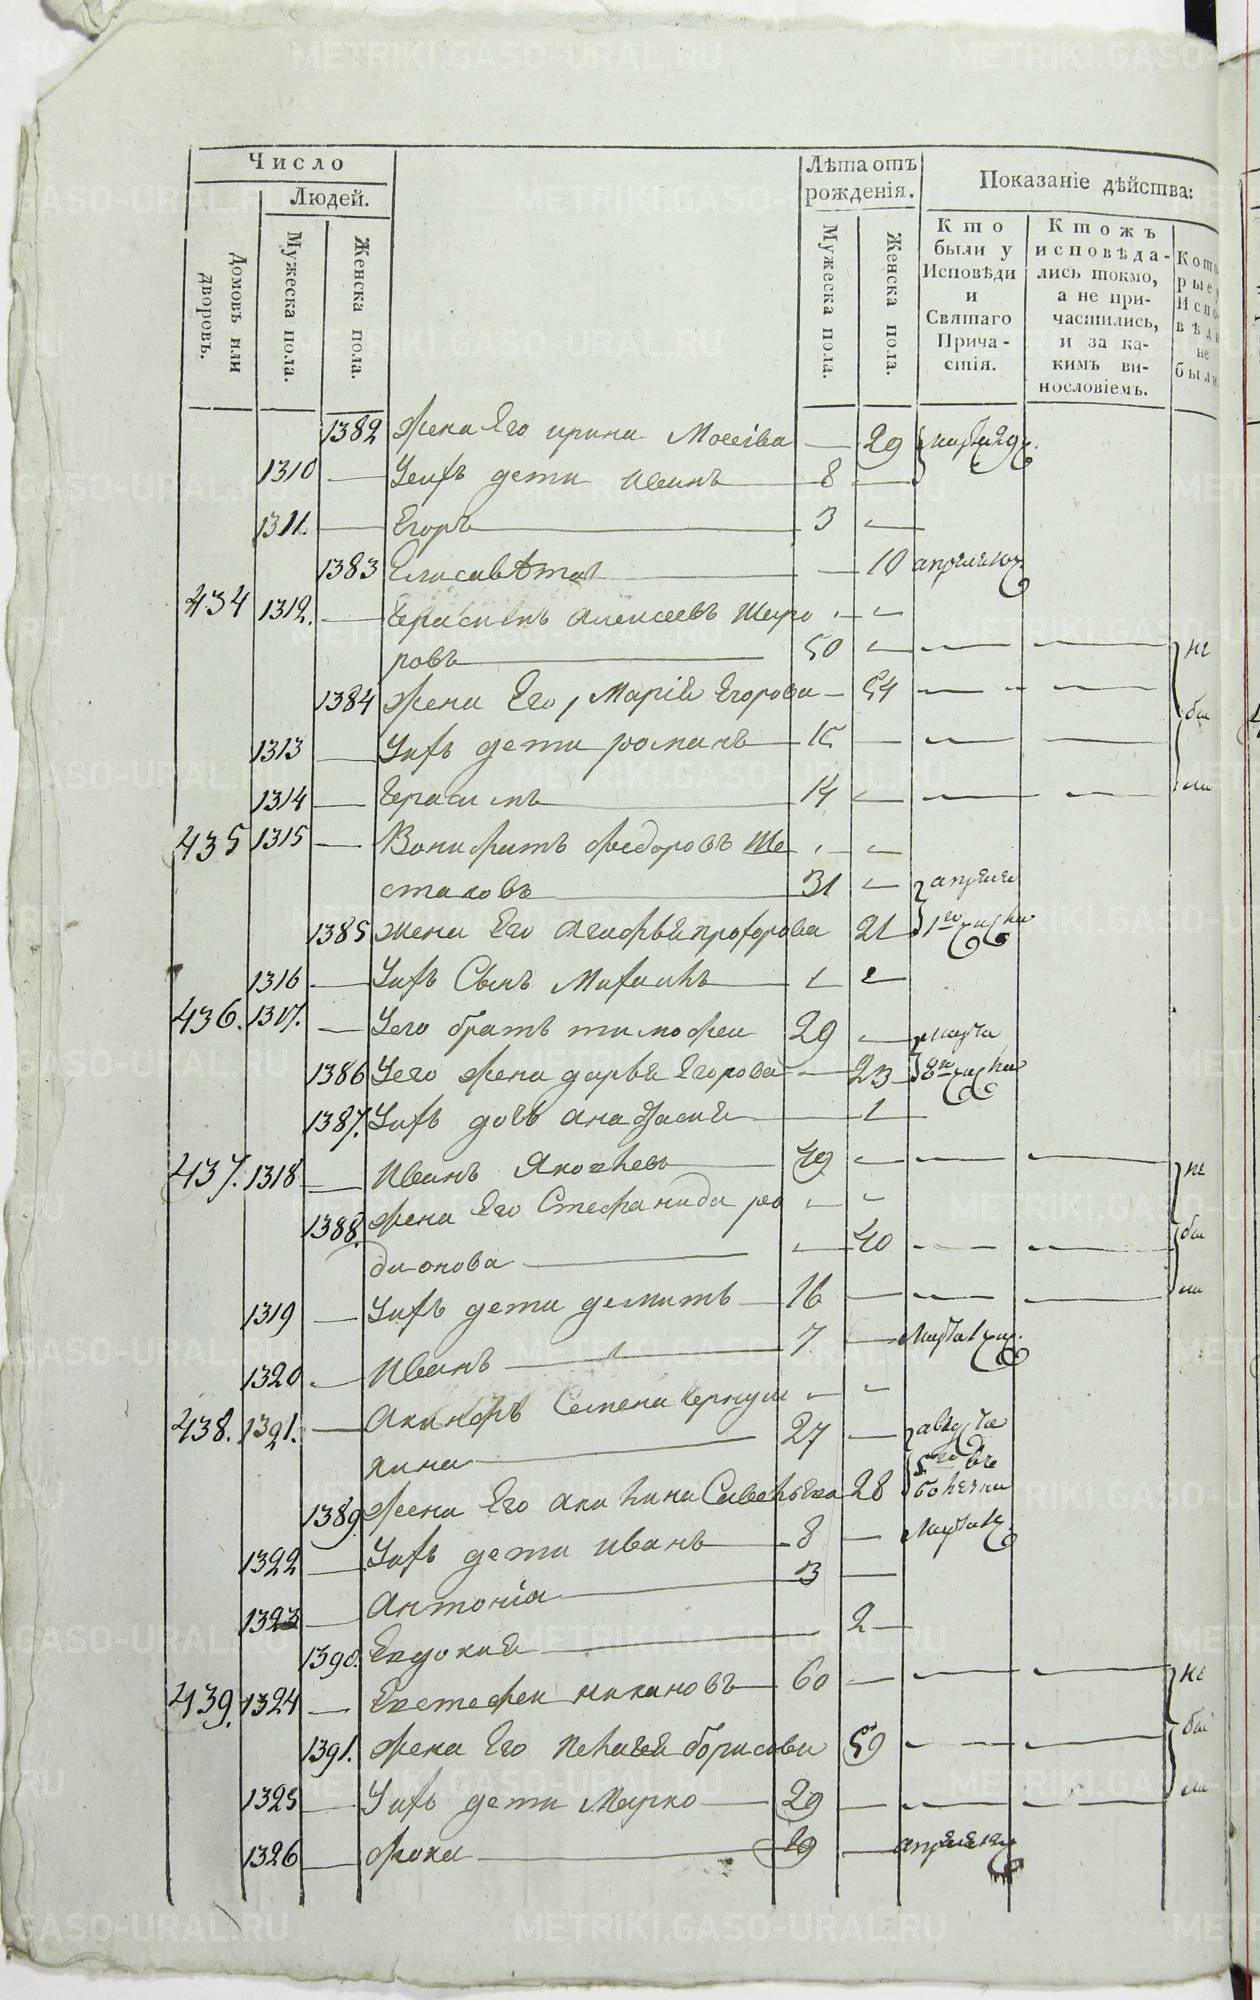 Число
Людей.
Домовъ или дворовъ.
Мужеска пола.
Женска пола.
Лѣта отъ рожденія.
Мужеска пола.
Женска пола.
Показаніе дѣйства:
Кто были у Исповѣди и Святаго Прича-стія.
Ктожъ исповѣда-лись токмо, а не при-частились, и за ка-кимъ ви-нословіемъ.
Кото-рые у Испо-вѣди не были
1382 жена Его ирина 29 марта 29
1310 Уихъ дети иванъ 8
1311. Егоръ 3
1383 Елисавѣта 10 апреля
434 1312. Герасимъ Алексеевъ Шаро
ровъ 50 не
1384 жена Его, Марiя Егорова 54 бы
1313 Уихъ дети романъ 15
1314 Герасимъ 14 ли
435 1315 Вонифатъ федоровъ Ше
стаковъ 31 апреля
1385 жена Его Агафья прохорова 21 1го числа
1316 Уихъ Сынъ Михаилъ 1
436. 1317. Уего братъ тимофеи 29 марта
1386 Уего жена дарья Егорова 23 8го числа
1387. Уихъ дочь анастасия 1
437. 1318 Иванъ Яковлевъ 49 не
1388. жена Его Стефанида ро
дионова 40 бы
1319 Уихъ дети 16 ли
1320 Иванъ 7 Марта
438. 1321. Акинфъ Семена
кина 27 августа
1389. жена Его акилина Савельева 28 5го въ болезни
1322 Уихъ дети иванъ 8 Марта
1323 Антонiа 3
1390. Евдокия 2
439. 1324 Евстефеи 60 не
1391. жена Его пелагея борисова 59 бы
1325 Уихъ дети Марко 29 ли
1326 фока 29 апреля
METRIKI.GASO-URAL.RU